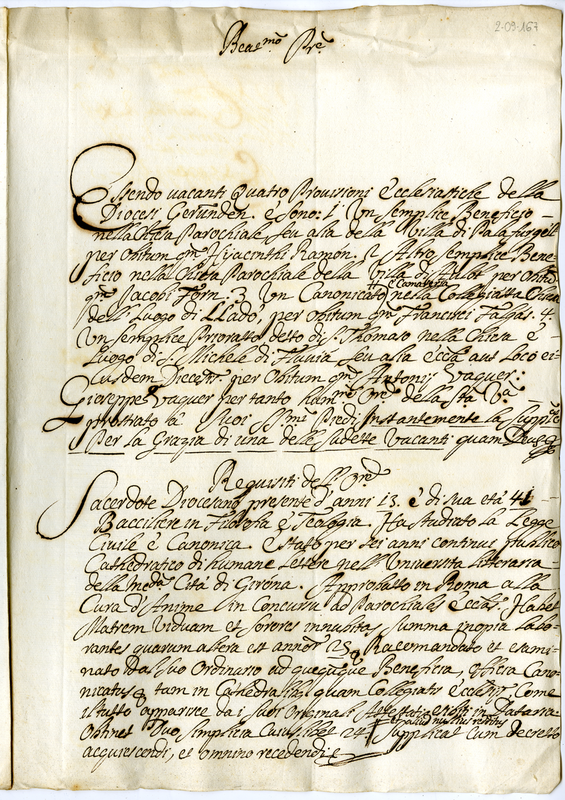 2-09-167
Beat.mo Pre
Essendo vacanti Quatro Provisioni Ecclesiastiche della
Diocesi Gerunden. è sono: 1 Un semplice Beneficio
nella Chiesa Parochiale, seu alia de la Villa di Palafurgell
per obitum qm Hyacinthi Ramon. 2 Altro semplice Bene-
ficio nella Chiesa Parochiale della Villa di per obitū
qm Jacobi Forn. 3 Un Canonicato nella Collegiatta
è Canonia
dell' Luogo di Lladò, per obitum qm Francisci Fages. 4
Un semplice Priorato detto di S. Thomaso nella Chiesa è
Luogo di S. Michele di Fluvia seu alia Ecca aut loco ei-
usdem Diecesis. per Obitum qm Antonij Vaquer:
Gioseppe Vaquer per tanto della Sta Va
prostrato a Suoi Piedi Instantemente la Suppca
Per la Grazia di una dele sudette Vacanti quam Deus &
Requisiti dell' Ore
Sacerdote Diocesano, presente d'anni 13. è di sua età 41
Bacciliere in Filosofia è Teologia. Ha studiato la Legge
Civile è Canonica. È stato per sei anni continui publico
Cathedratico di humane Letere nell' Università litteraria
della meda Cità di Girona. Approbato in Roma alla
Cura d'Anime in Concursu ad Parochiales Eccles. Habet
Matrem Viduam et Sorores innubtas, summa inopia labo-
rantes quarum altera est annor 25, Racomandato et esami-
nato Dal suo Ordinario ad quecunque Beneficia, officia Cano-
nicatus & tam in Cathedralibus, quam Collegiatis Ecclesijs. Come
il tutto apparisce da i suoi Originali Attestati esibiti in Dataria
Obtinet Duo Simplicia 24 Supplicat Cum decreto
acquiescendi, et omnino recedendi &